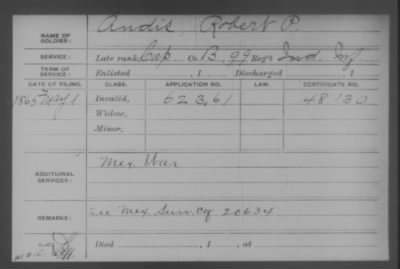 NAME OF SOLDIER: Andis, Robert P.
SERVICE: Late rank, Cap Co. B, 99 Reg't Ind. Inf
TERM OF SERVICE: Enlisted , 1 Discharged , 1
DATE OF FILING. CLASS. APPLICATION NO. LAW. CERTIFICATE NO.
1865 May 1 Invalid, 62361 48130
Widow,
Minor,
ADDITIONAL SERVICES: Mex. War
REMARKS: See Mex. Serv. Cf 20634
Died , 1 , at